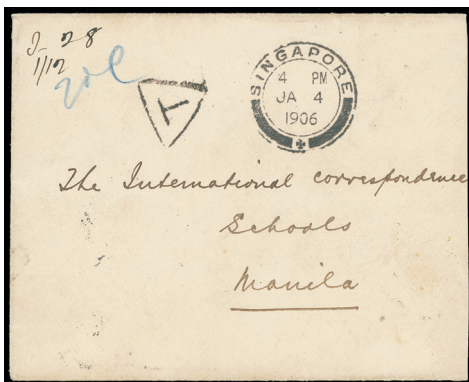 28
1/12
T
SINGAPORE
4 PM
JA 4
1906
The International correspondence
Schools
Manila